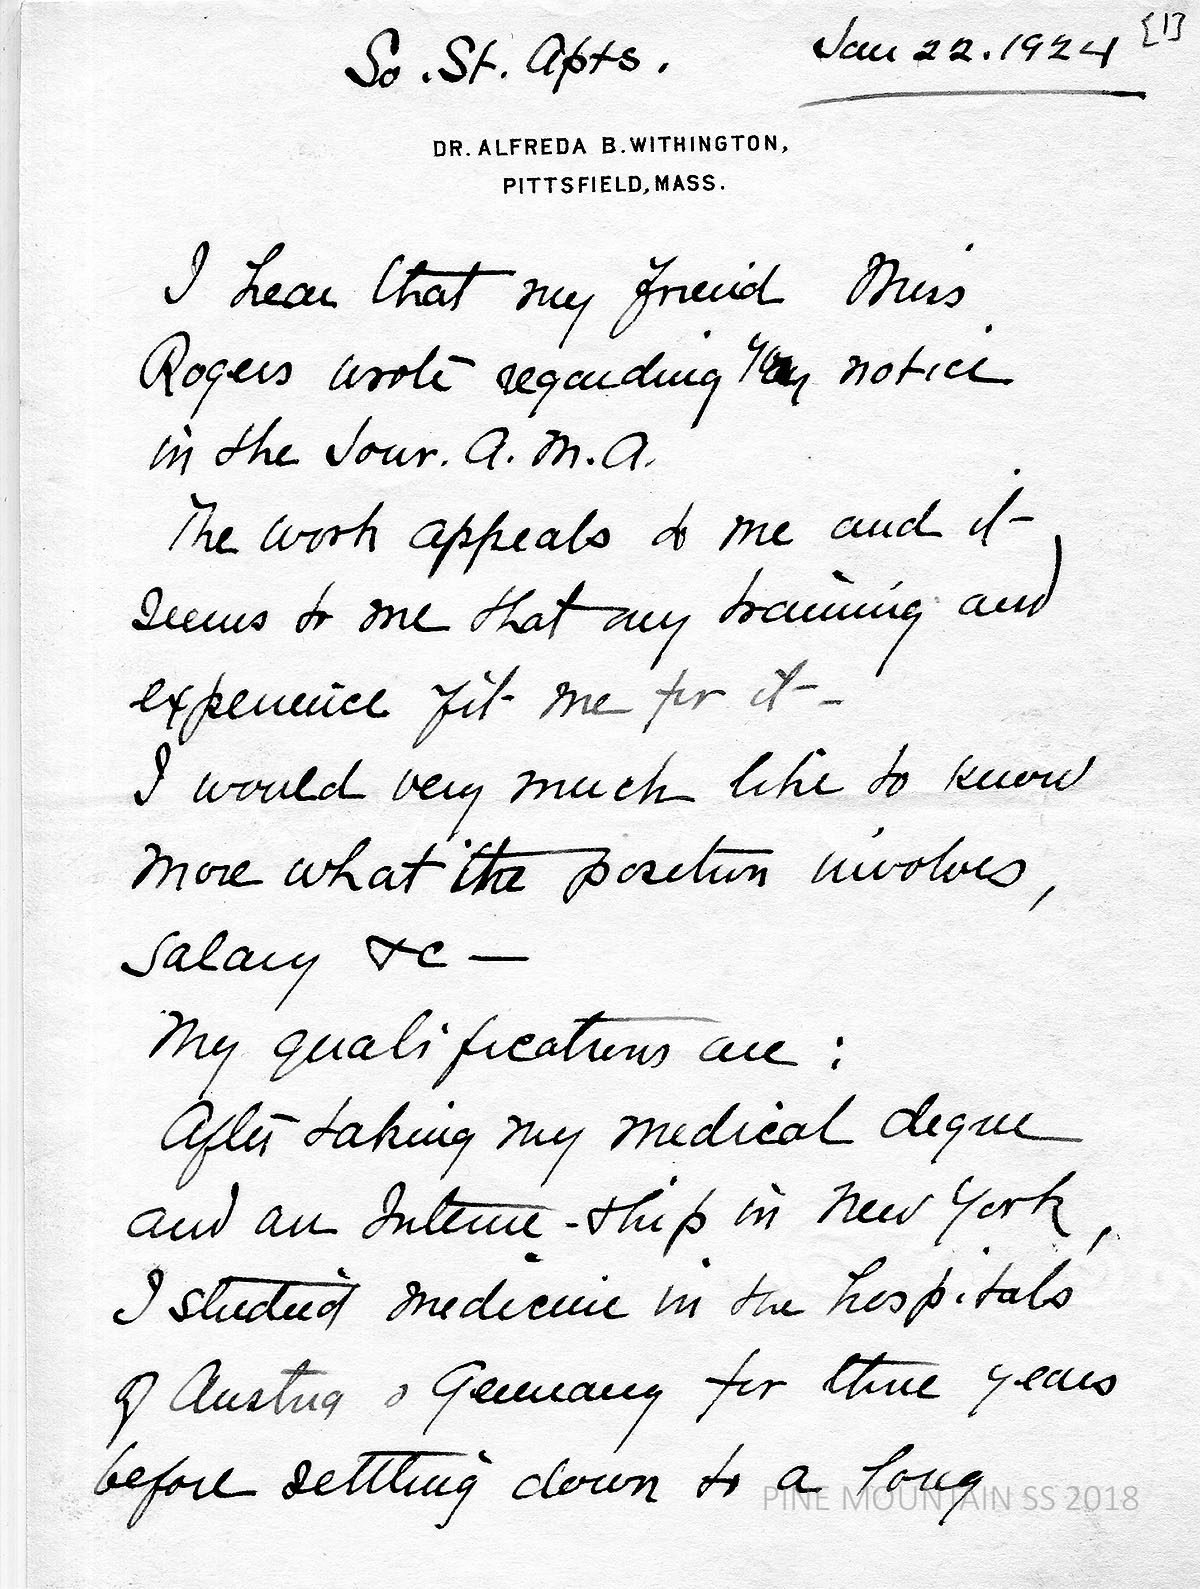 [1]
So. St. Apts. Jan 22. 1924
DR. ALFREDA B. WITHINGTON,
PITTSFIELD, MASS.
I hear that my friend Miss
Rogers wrote regarding notice
in the Jour. A. M. A.
The work appeals to me and it
seems to me that my training and
experience fit me for it -
I would very much like to know
more what the position involves,
salary &c —
My qualifications are :
After taking my medical degree
and an Interne-ship in New York,
I studied medicine in the hospitals
of Austria & Germany for three years
before settling down to a long
PINE MOUNTAIN SS 2018